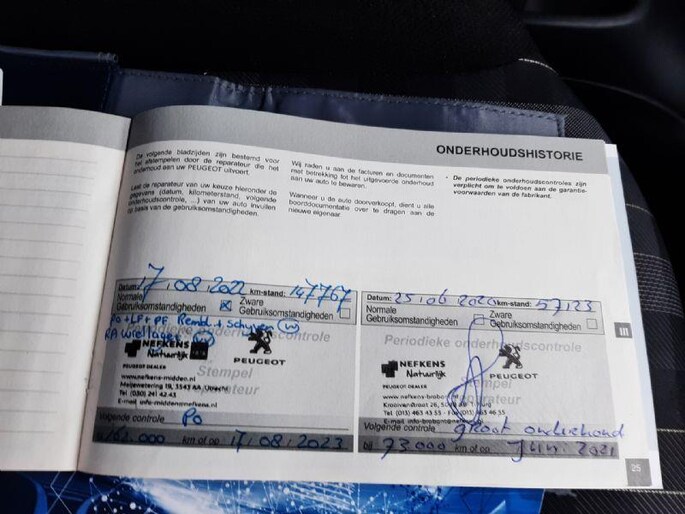 ONDERHOUDSHISTORIE
De volgende bladzijden zijn bestemd voor
het afstempelen door de reparateur die het
onderhoud aan uw PEUGEOT uitvoert.
Laat de reparateur van uw keuze hieronder de
gegevens (datum, kilometerstand, volgende
onderhoudscontrole, ...) van uw auto invullen
op basis van de gebruiksomstandigheden.
Wij raden u aan de facturen en documenten
met betrekking tot het uitgevoerde onderhoud
aan uw auto te bewaren.
Wanneer u de auto doorverkoopt, dient u alle
boorddocumentatie over te dragen aan de
nieuwe eigenaar.
• De periodieke onderhoudscontroles zijn
verplicht om te voldoen aan de garantie-
voorwaarden van de fabrikant.
Datum: 17 08 2022 km-stand: 147767
Normale Gebruiksomstandigheden
Zware Gebruiksomstandigheden
PF Remb + Schyven (W)
RA Wiellager (W)
Periodieke onderhoudscontrole
NEFKENS
Natuurlijk
PEUGEOT
PEUGEOT DEALER
Stempel
reparateur
www.nefkens-midden.nl
Meijewetering 19, 3543 AA Utrecht
Tel (030) 241 42 43
E-mail info-midden@nefkens.nl
Volgende controle Po
162.000 km of op 17 08 2023
Datum: 25 06 2020 km-stand: 57123
Normale Gebruiksomstandigheden
Zware Gebruiksomstandigheden
Periodieke onderhoudscontrole
NEFKENS
Natuurlijk
PEUGEOT
PEUGEOT DEALER
Stempel
reparateur
www.nefkens-brabant.nl
Tel (013) 463 43 55 - Fax (013) 463 46 55
Volgende controle groot onderhoud
bij 73 000 km of op Juni 2021
III
25